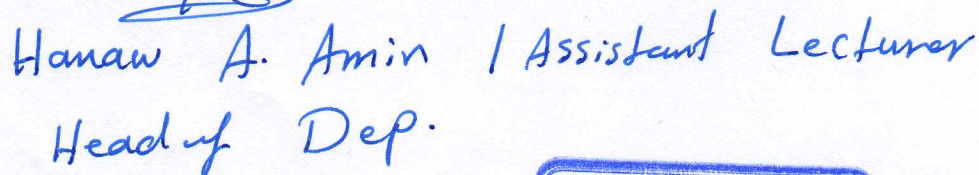 Hanaw A. Amin / Assistant Lecturer
Head of Dep.